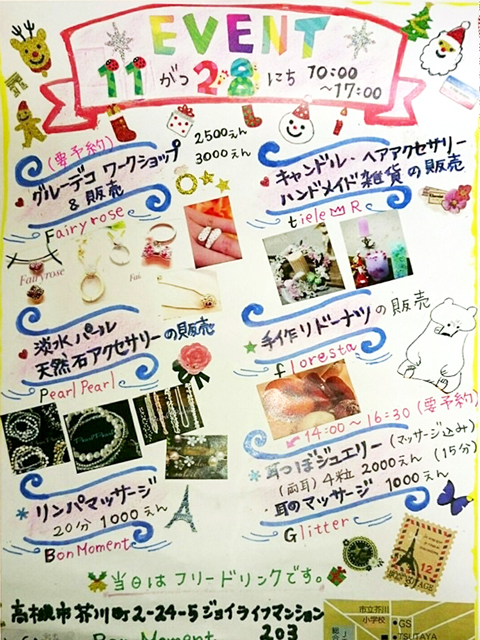 EVENT
11がつ28にち 10:00
~17:00
(要予約)
グルーデコ ワークショップ
&販売
2500えん
3000えん
Fairyrose
Fairyrose
キャンドル・ヘアアクセサリー
ハンドメイド雑貨の販売
tiele R
淡水パール
天然石アクセサリーの販売
PearlPearl
手作りドーナツの販売
floresta
14:00~16:30(要予約)
耳つぼジュエリー(マッサージ込み)
(両耳)4粒 2000えん(15分)
・耳のマッサージ 1000えん
Glitter
リンパマッサージ
20分 1000えん
BonMoment
当日はフリードリンクです。
高槻市芥川町2-24-5ジョイライフマンション
203
Bon Moment
市立芥川
小学校
GS
TSUTAYA